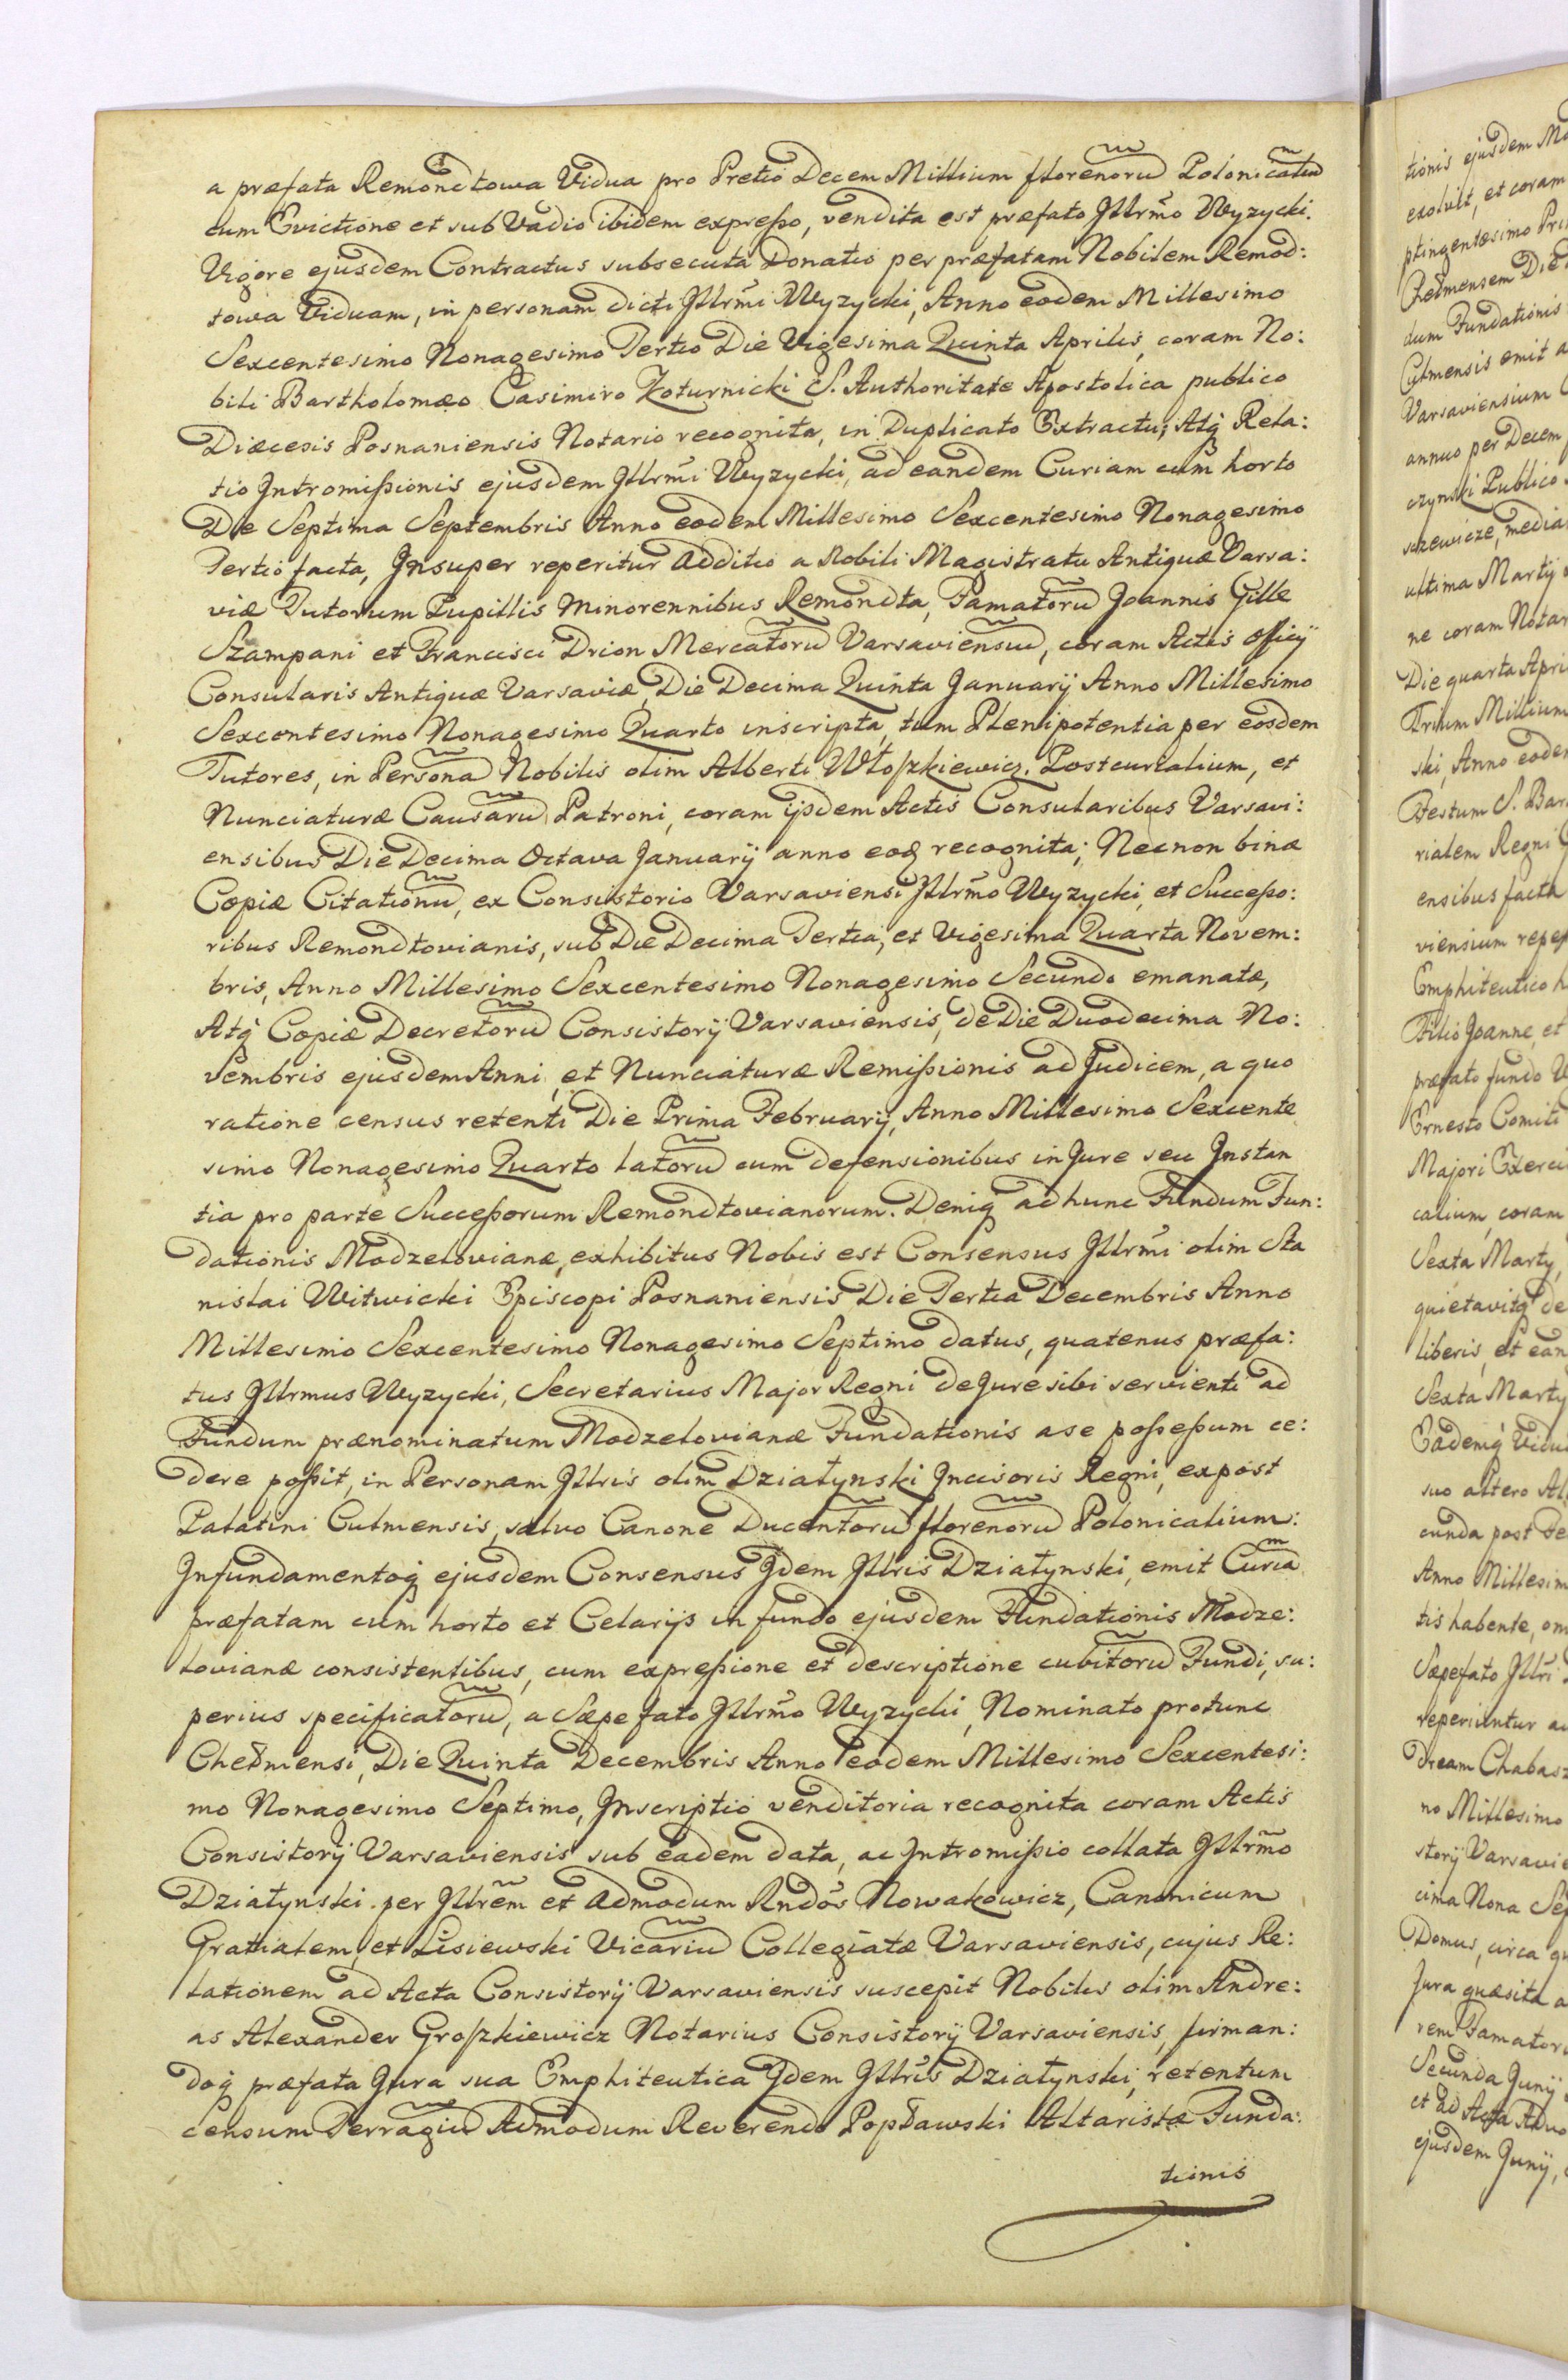 a præfata Remondtowa Vidua pro Pretio Decem Millium florenorũ Polonicaliũ
cum Evictione et sub Vadio ibidem expresso, vendita est præfato Jllrmõ Wyzycki.
Vigore ejusdem Contractus subsecuta Donatio per præfatam Nobilem Remod:
towa Viduam, in personam dicti Jllrmĩ Wyzycki, Anno eodem Millesimo
Sexcentesimo Nonagesimo Tertio Die Vigesima Quinta Aprilis, coram No:
bili Bartholomæo Casimiro Koturnicki S. Authoritate Apostolica publico
Diæcesis Posnaniensis Notario recognita, in Duplicato Extractu; Atq́ Rela:
tio Jntromissionis ejusdem Jllrmĩ Wyzycki, ad eandem Curiam cum horto
Die Septima Septembris Anno eodem Millesimo Sexcentesimo Nonagesimo
Tertio facta, Jnsuper reperitur Additio a Nobili Magistratu Antiquæ Varsa:
viæ Tutorum Pupillis Minorennibus Remondta, Famatorũ Joannis Gille
Szampani et Francisci Drion Mercatorũ Varsaviensiũ, coram Actis Officÿ
Consularis Antiquæ Varsaviæ, Die Decima Quinta Januarÿ Anno Millesimo
Sexcentesimo Nonagesimo Quarto inscripta, tum Plenipotentia per eosdem
Tutores, in Personã Nobilis olim Alberti Włoszkiewicz. Postcurialium, et
Nunciaturæ Causarũ Patroni, coram ÿsdem Actis Consularibus Varsavi:
ensibus Die Decima Octava Januarÿ anno eoq́ recognita; Necnon binæ
Copiæ Citationũ, ex Consistorio Varsaviensi Jllrmõ Wyzycki, et Successo:
ribus Remondtovianis, sub Die Decima Tertia, et Vigesima Quarta Novem:
bris, Anno Millesimo Sexcentesimo Nonagesimo Secundo emanatæ,
Atq́ Copiæ Decretorũ Consistorÿ Varsaviensis, de Die Duodecima No:
vembris ejusdem Anni, et Nunciaturæ Remissionis ad Judicem, a quo
ratione census retenti Die Prima Februarÿ, Anno Millesimo Sexcente
simo Nonagesimo Quarto latorũ cum defensionibus in Jure seu Jnstan
tia pro parte Successorum Remondtovianorum. Deniq́ ad hunc Fundum Fun:
dationis Modzelovianæ, exhibitus Nobis est Consensus Jllrmĩ olim Sta
nislai Witwicki Episcopi Posnaniensis Die Tertia Decembris Anno
Millesimo Sexcentesimo Nonagesimo Septimo datus, quatenus præfa:
tus Jllrmus Wyzycki, Secretarius Major Regni de Jure sibi servienti ad
Fundum prænominatum Modzelovianæ Fundationis a se possessum ce:
dere possit, in Personam Jllris olim Działynski Jncisoris Regni, expost
Palatini Culmensis, salvo Canone Ducentorũ florenorũ Polonicalium:
Jnfundamentoq́ ejusdem Consensus Jdem Jllris Działynski, emit Curiã
præfatam cum horto et Celarÿs in fundo ejusdem Fundationis Modze:
lovianæ consistentibus, cum expressione et descriptione cubitorũ Fundi, su:
perius specificatorũ, a Sæpefato Jllrmõ Wyzycki, Nominato protunc
Chełmensi, Die Quinta Decembris Anno eodem Millesimo Sexcentesi:
mo Nonagesimo Septimo, Jnscriptio venditoria recognita coram Actis
Consistorÿ Varsaviensis sub eadem data, ac Jntromissio collata Jllrmõ
Działynski per Jllrẽm et Admodum Rndõs Nowakowicz, Canonicum
Gratialem, et Lisiewski Vicariũ Collegiatæ Varsaviensis, cujus Re:
lationem ad Acta Consistorÿ Varsaviensis suscepit Nobilis olim Andre:
as Alexander Groszkiewicz Notarius Consistorÿ Varsaviensis, firman:
doq́ præfata Jura sua Emphiteutica Jdem Jllris Działynski, retentum
censum Terragiũ Admodum Reverendo Popławski Altaristæ Funda:
tionis
tionis ejusdem Mo
exolvit, et coram
ptingentesimo Pri
Chełmensem Die
dum Fundationis
Culmensis emit a
Varsaviensium
annuo per Decem
czynski Publico
szewicze, media
ultima Martÿ
ne coram Notar
Die quarta Apri
Trium Millium
ski, Anno eoden
Festum S. Bar
rialem Regni
ensibus facta
viensium reper
Emphiteutico h
Filio Joanne, et
præfato fundo
Ernesto Comiti
Majori Exerci
calium, coram
Sexta Martÿ,
quietavitq́ de
liberis, et ean
Sexta Martÿ
Eademq́ Vidu
suo altero Al
cunda post Fe
Anno Millesim
tis habente, om
Sæpefato Jllri
reperiuntur a
dream Chabasz
no Millesimo
storÿ Varsavie
cima Nona Sep
Domus, circa qu
Jura quæsita a
rem Famatoru
Secunda Junÿ
et ad Acta Advo
ejusdem Junÿ,